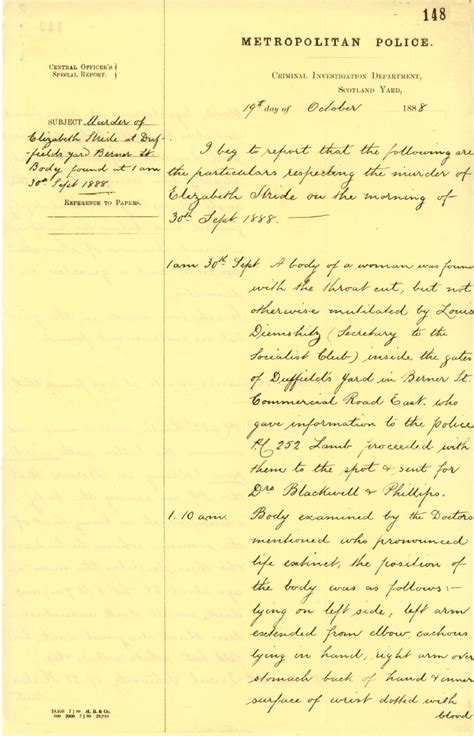 148
METROPOLITAN POLICE.
CENTRAL OFFICER'S
SPECIAL REPORT.
CRIMINAL INVESTIGATION DEPARTMENT,
SCOTLAND YARD,
19th day of October 1888
SUBJECT Murder of
Elizabeth Stride at Duf-
-fields Yard Berner St
Body found at 1 am
30th Sept 1888.
REFERENCE TO PAPERS.
I beg to report that the following are
the particulars respecting the murder of
Elizabeth Stride on the morning of
30th Sept 1888. —
1 am 30th Sept. A body of a woman was found
with the throat cut, but not
otherwise mutilated by Louis
Diemshitz (Secretary to the
Socialist Club) inside the gates
of Duffield's Yard in Berner St.
Commercial Road East. who
gave information to the police
P.C. 252 Lamb proceeded with
them to the spot & sent for
Drs Blackwell & Phillips.
1. 10 am. Body examined by the Doctors
mentioned who pronounced
life extinct, the position of
the body was as follows:—
lying on left side, left arm
extended from elbow, cachous
lying in hand, right arm over
stomach back of hand & inner
surface of wrist dotted with
blood
M. B. & Co.